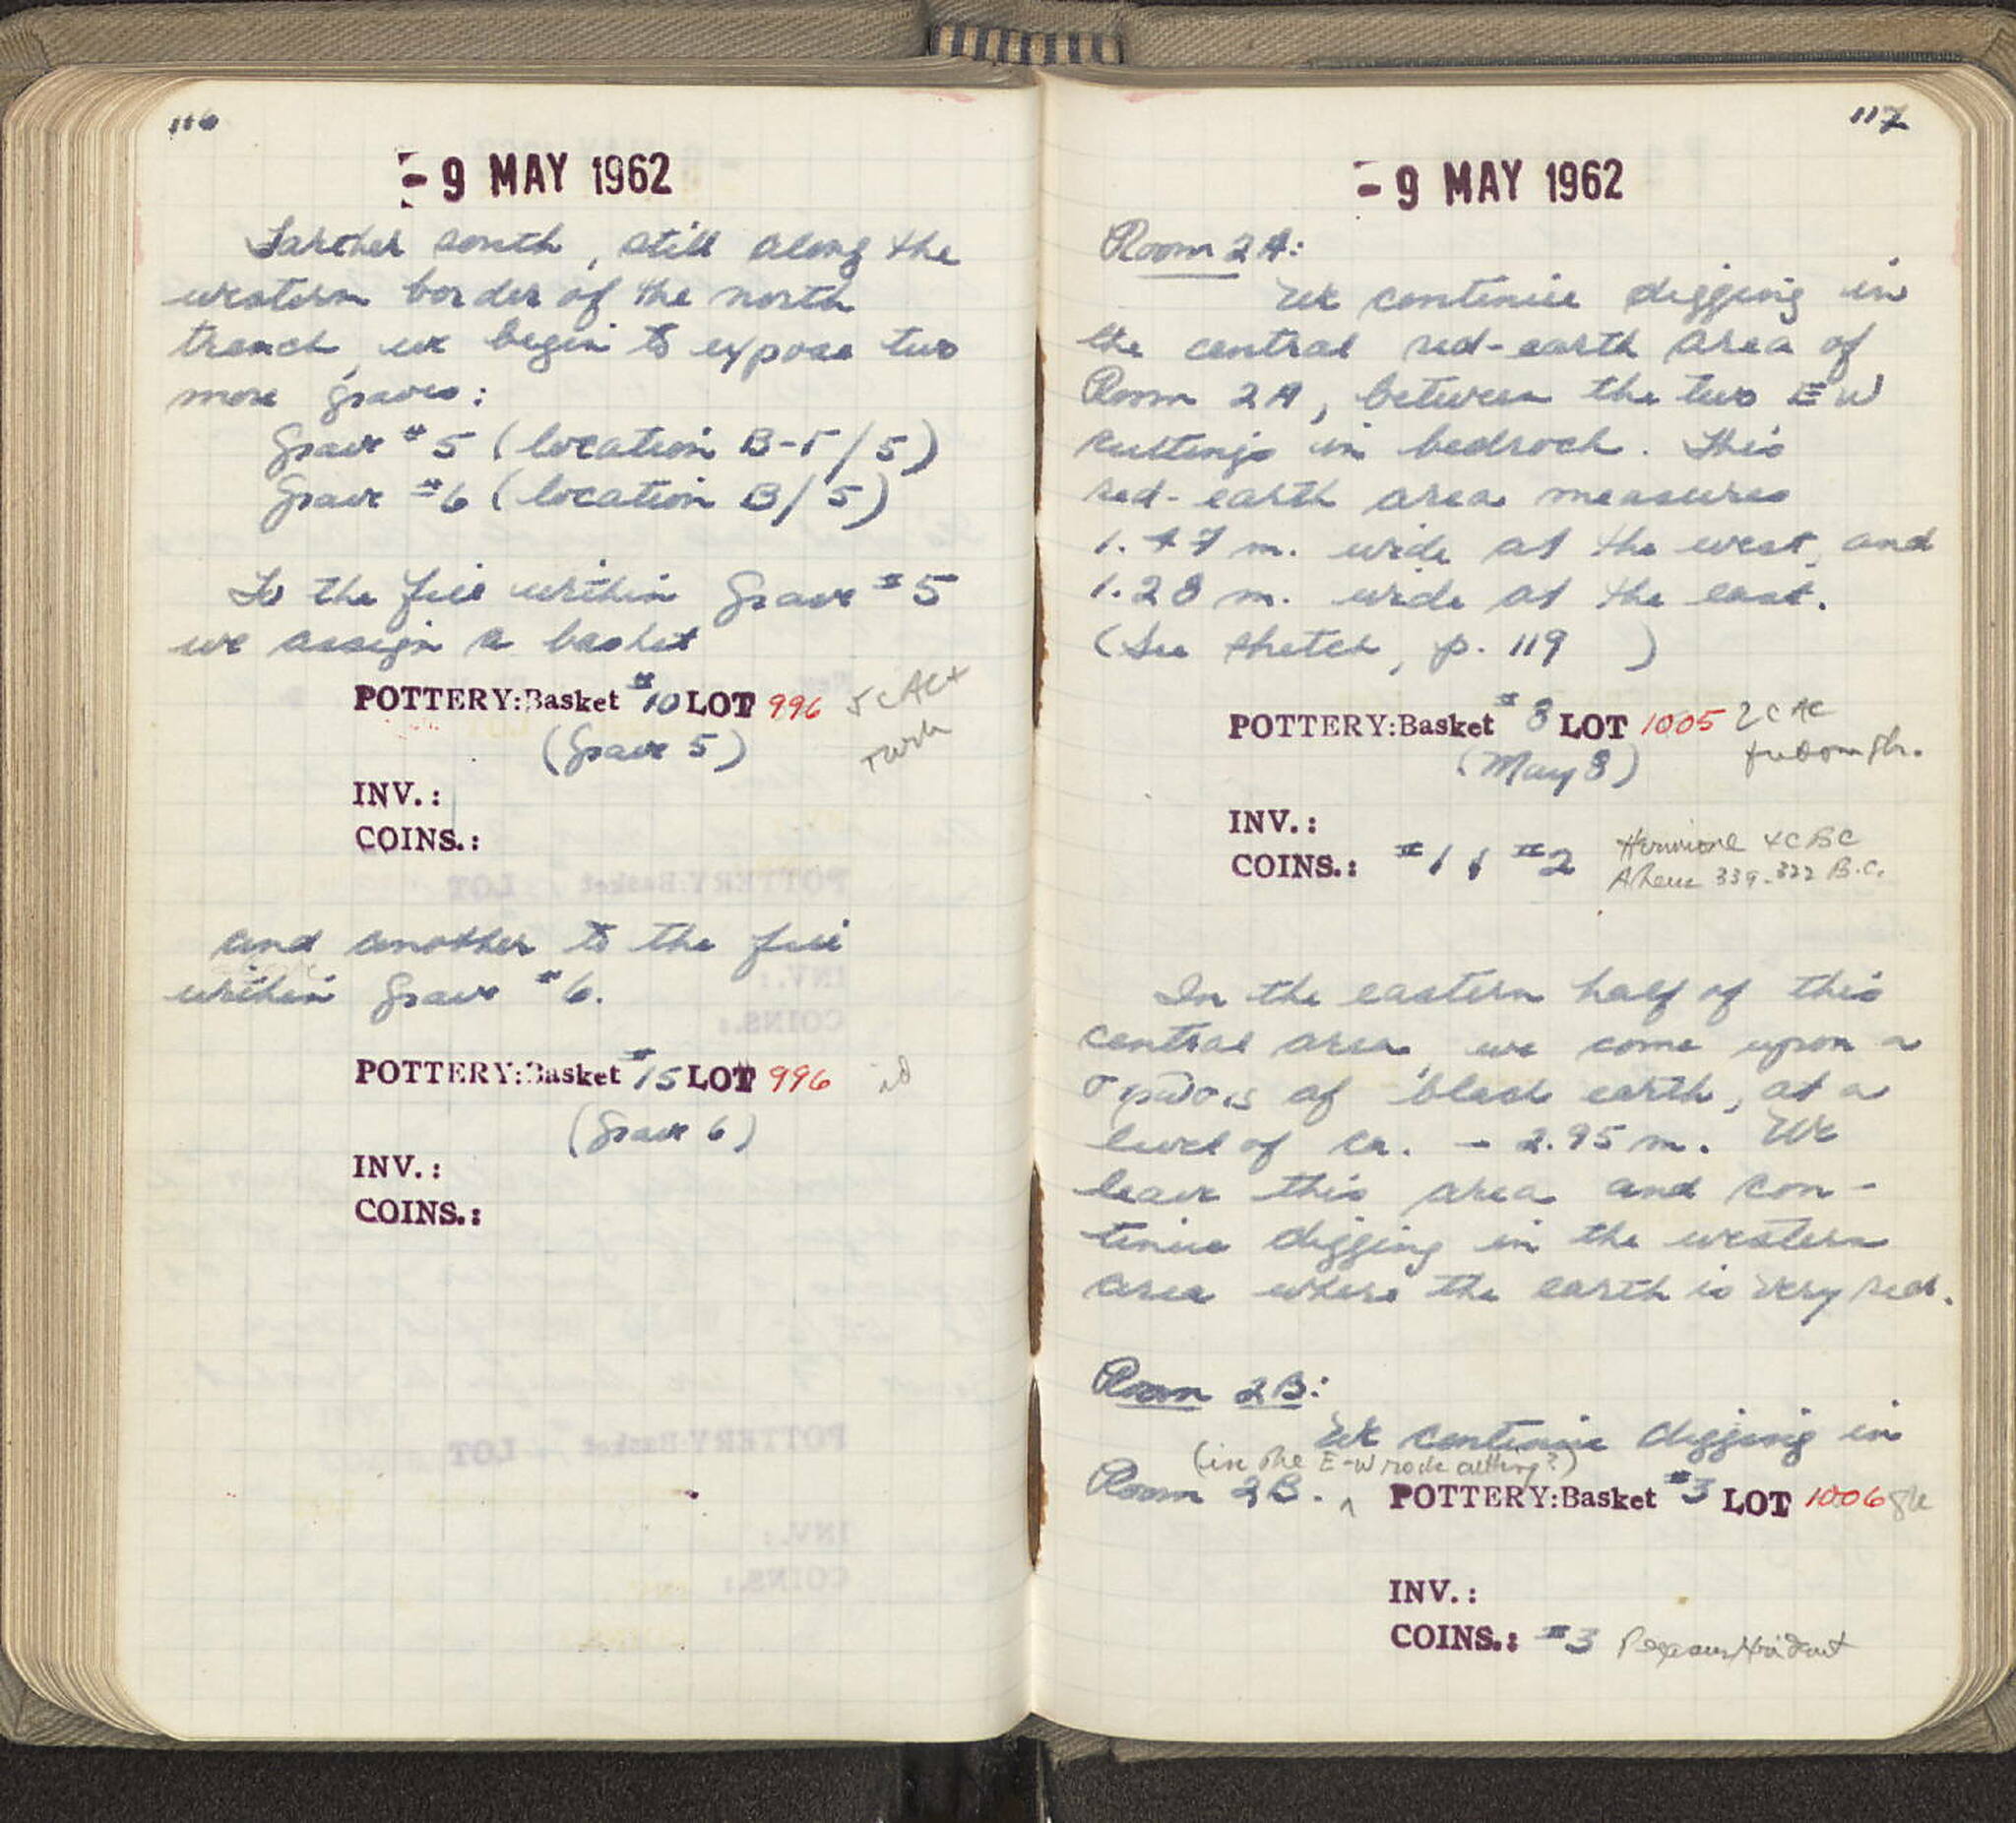 116
- 9 MAY 1962
Farther south, still along the
western border of the north
trench, we begin to expose two
more graves:
Grave #5 (location B-Γ/5)
Grave #6 (location B/5)
To the fill within Grave #5
we assign a basket
POTTERY:Basket #10 LOT 996 5 c AC+
(Grave 5)
INV.:
COINS.:
and another to the fill
within Grave #6.
POTTERY:Basket #15 LOT 996 id
(Grave 6)
INV.:
COINS.:
117
- 9 MAY 1962
Room 2A:
We continue digging in
the central red-earth area of
Room 2A, between the two EW
cuttings in bedrock. This
red-earth area measures
1.47 m. wide at the west, and
1.28 m. wide at the east.
(See sketch, p. 119 )
POTTERY:Basket #8 LOT 1005 2 c AC
(May 8)
INV.:
COINS.: #1 & #2 Hermione 4 c BC
339-322 B.C.
In the eastern half of this
central area, we come upon a
στρῶσις of black earth, at a
level of ca. - 2.95 m. We
leave this area and con-
tinue digging in the western
area where the earth is very red.
Room 2B:
We continue digging in
(in the E-W rock cutting?)
Room 2B. ^ POTTERY:Basket #3 LOT 1006
INV.:
COINS.: #3 Pegasus/trident